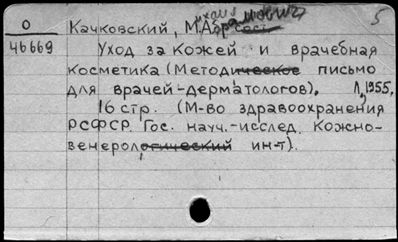 5
О
46669
Качковский, М.Абрамович
Уход за кожей и врачебная
косметика (Методическое письмо
для врачей-дерматологов), Л, 1955.
16 стр. (М-во здравоохранения
РСФСР. Гос. науч.-исслед. Кожно-
венерологический ин-т).